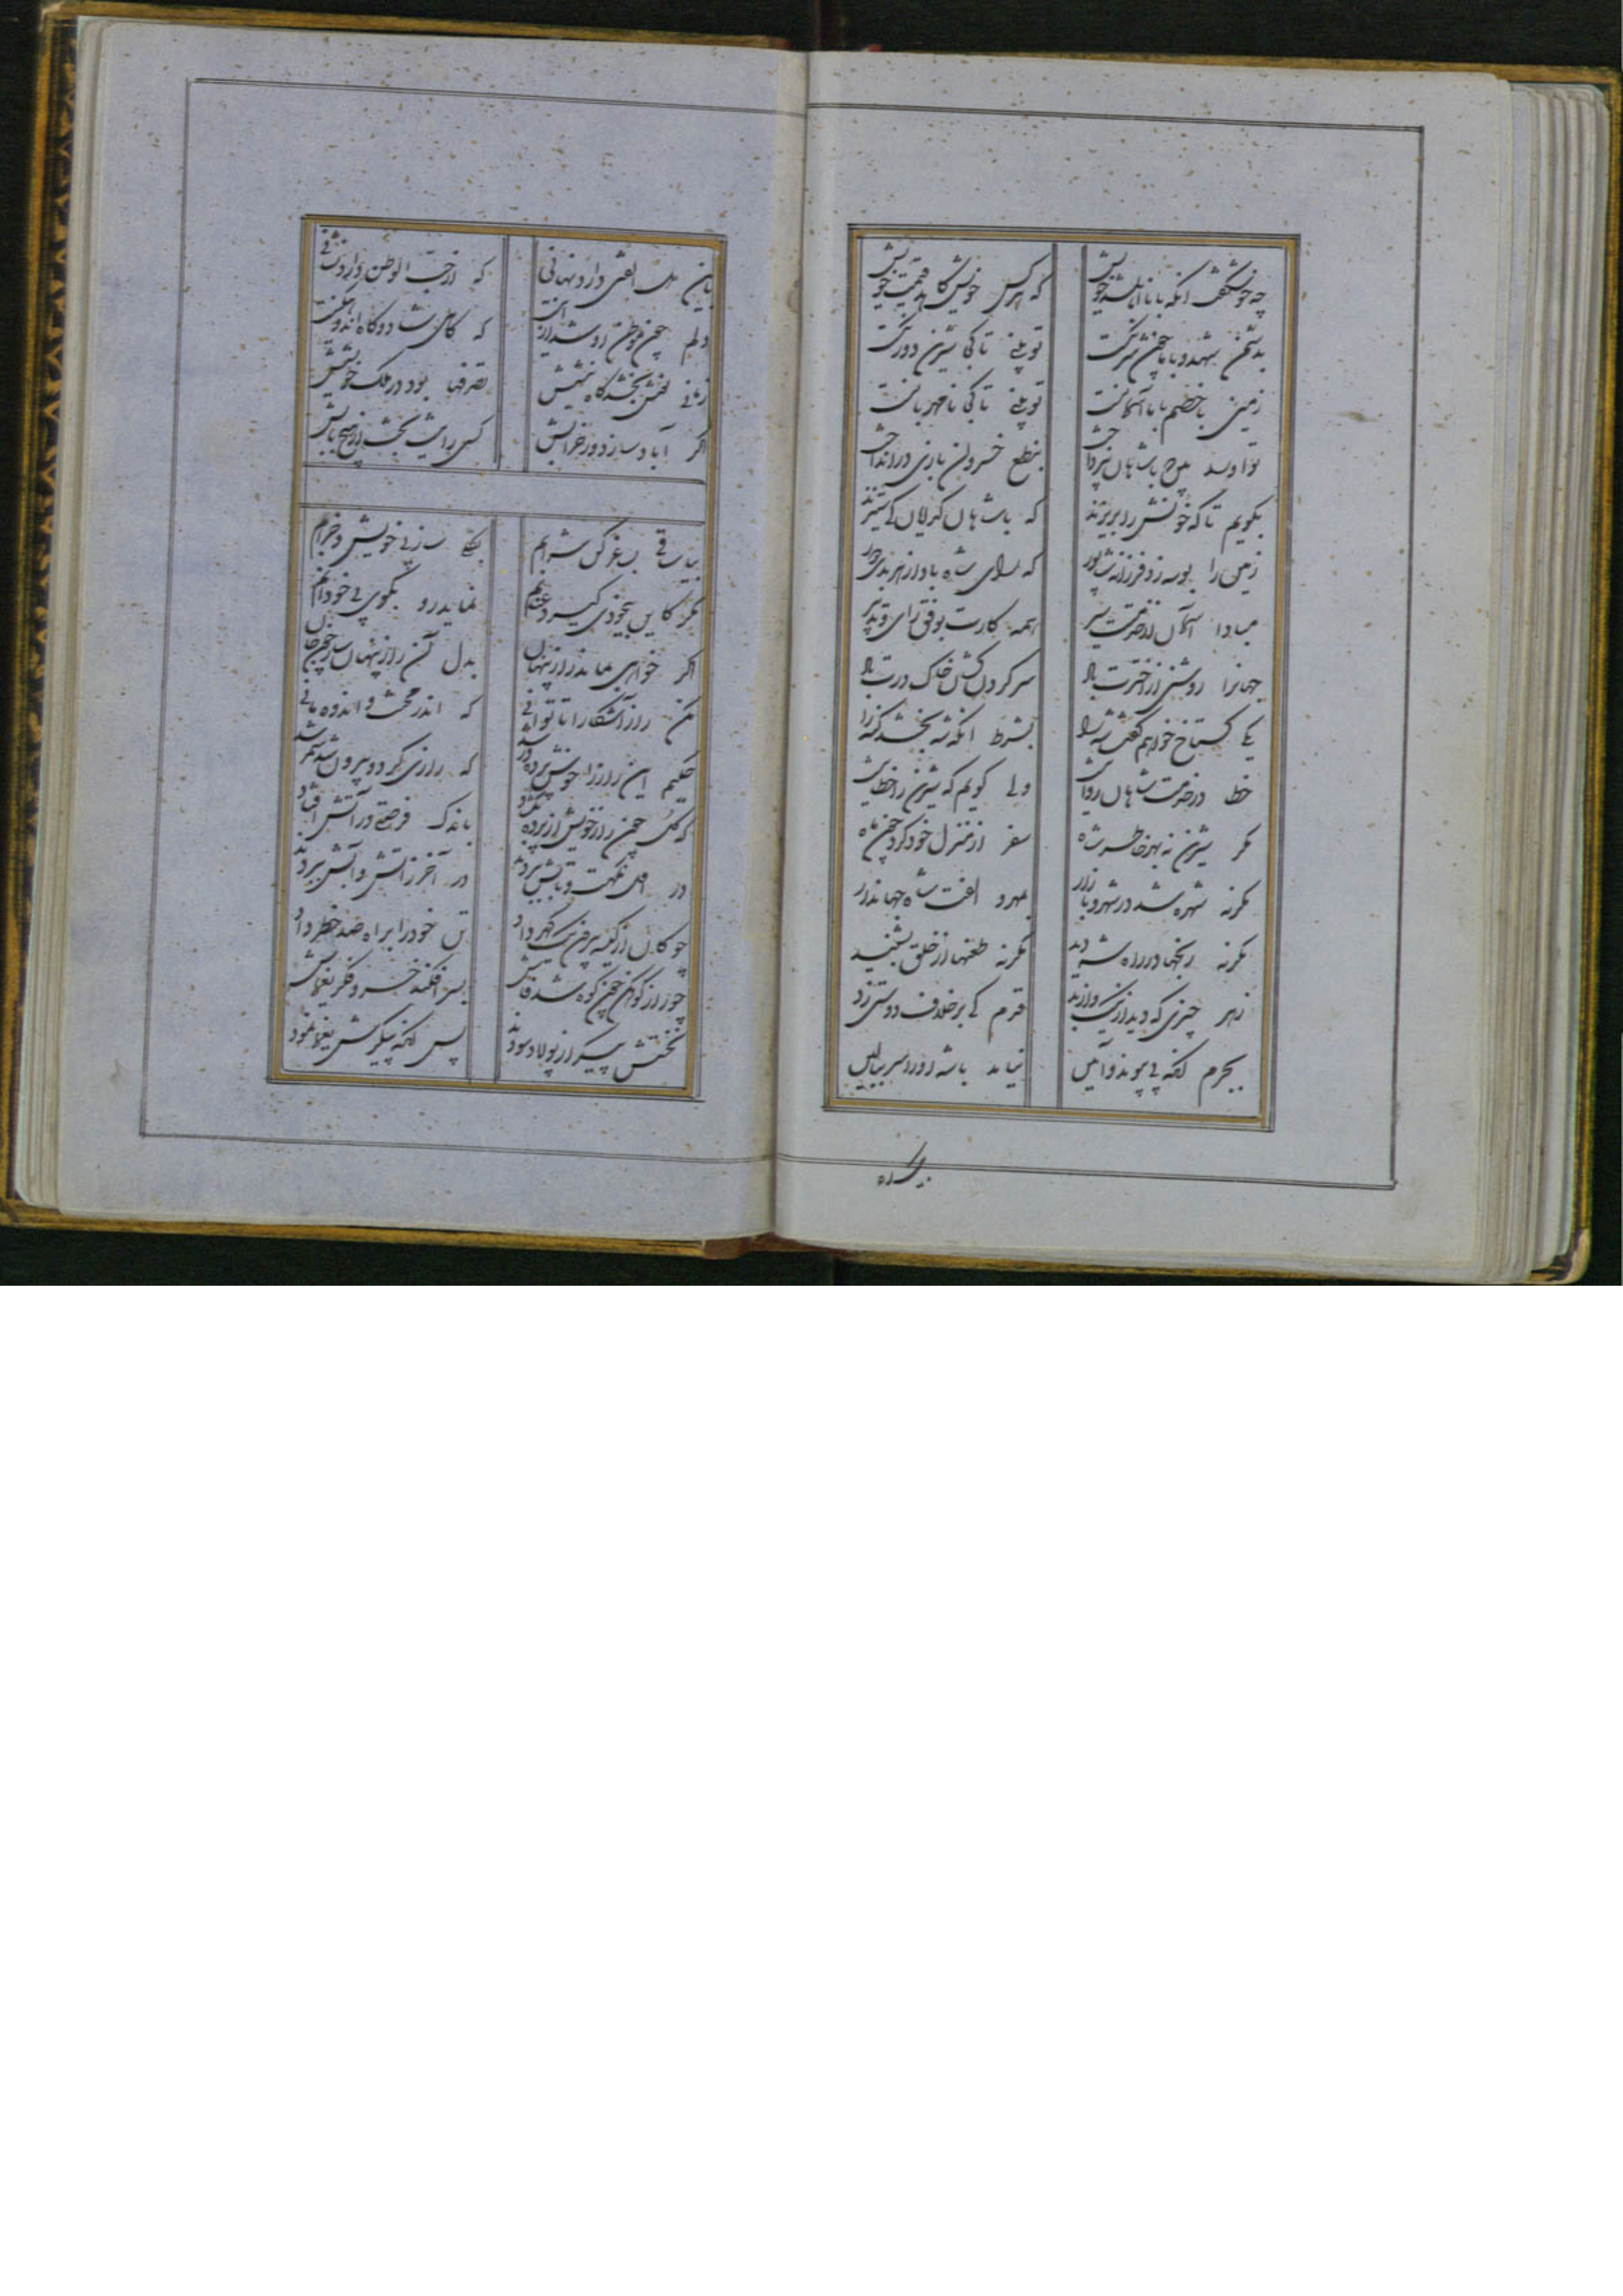 چه خوش گفت آنکه با نااهل شد خویش که هر کس خویش کاهد قیمت خویش
بدشمن شهد و با ما چون شرنگست تو بینی تا کی شیرین دورنگست
زمین با خصم با ما آسمانست تو بینی تا کی نامهربانست
باشاهان نپرداخت بنطع خسروان بازی درانداخت
بگویم تا که خونش را بریزند که با شاهان گدایان کی ستیزند
زمین را بوسه زد فرزانه شاپور که رای شاه باد از هر بدی دور
مبادا آسمان از خدمتت سیر همه کارت بوفق رای و تدبیر
جهانرا روشنی از اخترت باد سر گردن کشان خاک درت باد
یکی گستاخ خواهم گفت شه را بشرط آنکه شه بخشد گنه را
خطا در خدمت شاهان روا نیست ولی گویم که شیرین را خطا نیست
مگر شیرین نه بهر خاطر شاه سفر از منزل خود کرد چون ماه
مگر نه شهره شد در شهر و بازار بمهر و الفت شاه جهاندار
مگر نه رنجها در راه شه دید مگر نه طعنها از خلق بشنید
ز هر چیزی که دید از نیک و از بد قدم کی بر خلاف دوستی زد
بجرم آنکه بی پیوند و آیین نیامد با شه او را سر ببالین
باین ملک الفتی دارد نهانی که از حب الوطن دارد نشانی
دلم چون موطن او شد از آنست که گاهی شاد و گاه اندوهگینست
زمانی بخشد گاه نیشش تصرفها بود در ملک خویشش
اگر آباد سازد ور خرابش کسی را نیست بحث از هیچ بابش
بیا ساقی بساغر کن شرابم ساز بی خویش و خرابم
مگر کاین بیخودی گیرد عنانم نماید رو بکوی بی خودانم
اگر خواهی نماند راز پنهان بدل آن راز پنهان ساز چون جان
مکن راز آشکارا تا توانی که اندر محنت و اندوه مانی
حکیم این راز را خوش پرده در شد که رازی کز دو بیرون شد سمر شد
که گل چون راز خویش از پرده بگشاد باندک فرصتی در آتش افتاد
در اول نکهت و تابش ببردند در آخر ز آتش و آبش ببردند
چو کان از کیسه بیرون گهر داد تن خود را براه صد خطر داد
چو راز کوهکن چون کوه شد فاش بسر افکند خسرو فکر یغماش
نخستش پیکر از پولاد سودند پس آنگه پیکرش یغما نمودند